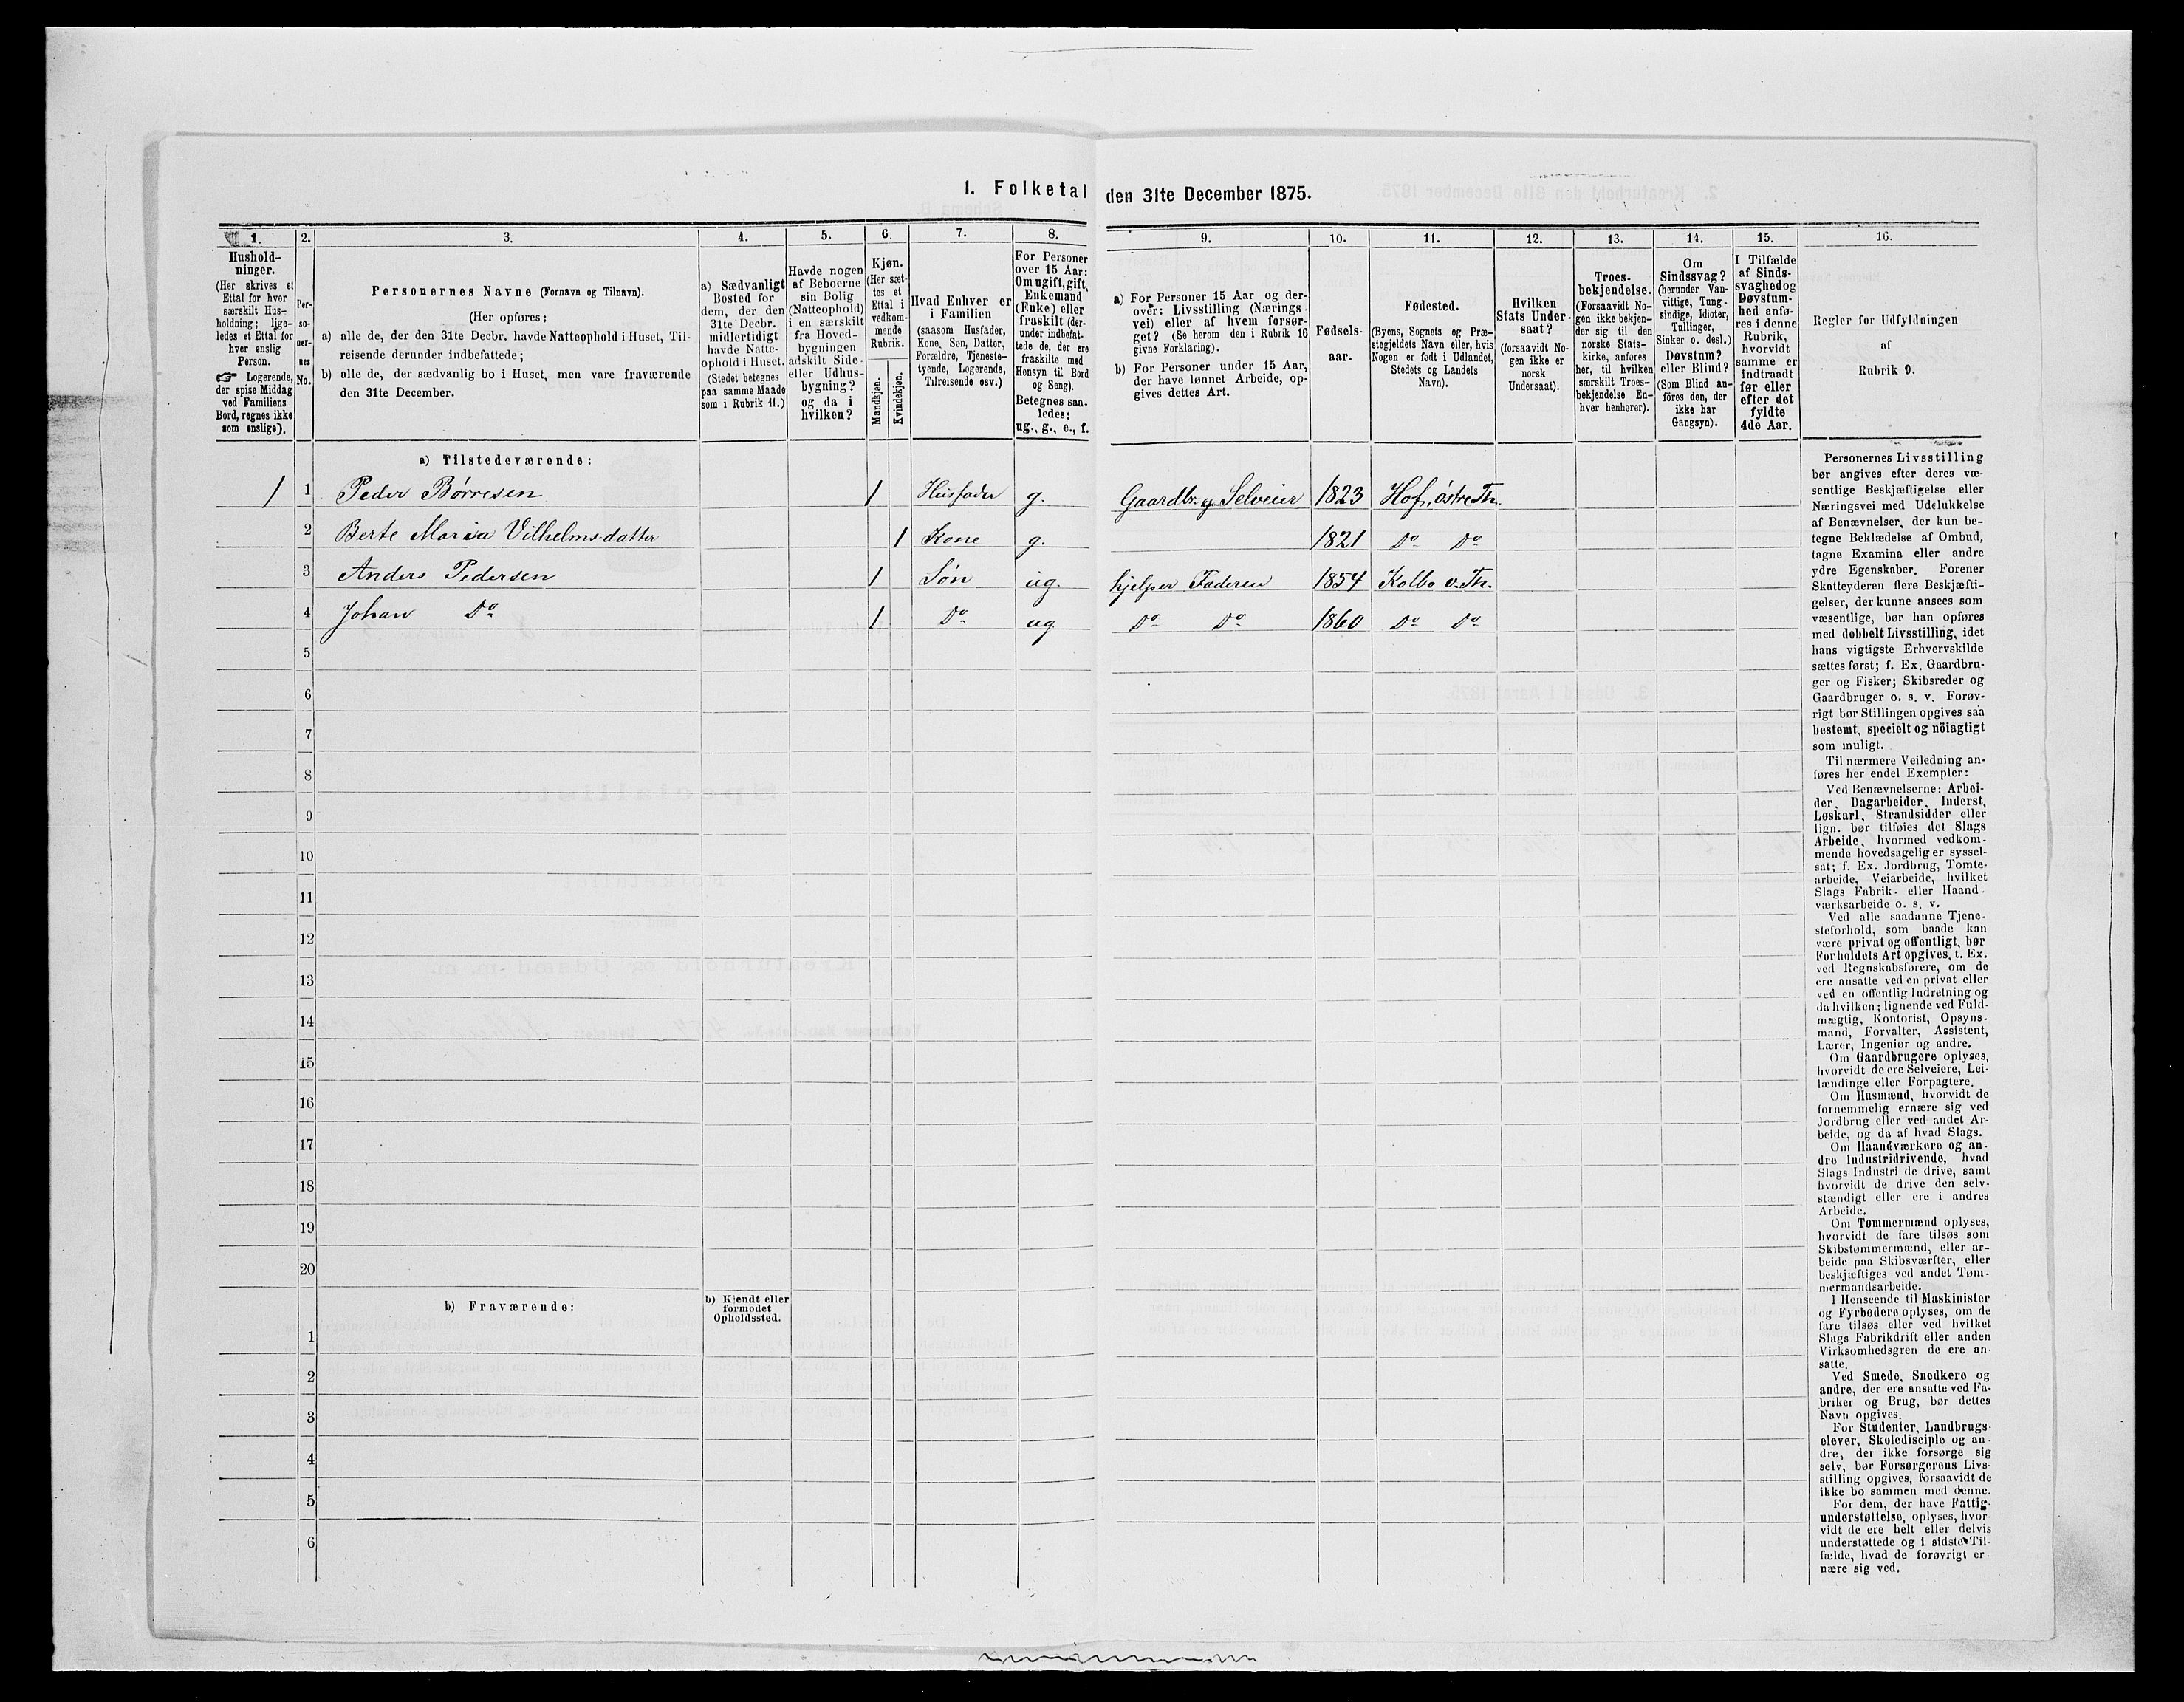 1. Folketal den 31te December 1875.
1.
2.
3.
4.
5.
6.
7.
8.
9.
10.
11.
12.
13.
14.
15.
16.
Hushold-
ninger.
(Her skrives et
Ettal for hver
særskilt Hus-
holdning; lige-
ledes et Ettal for
hver enslig
Person.
☞ Logerende,
der spise Middag
ved Familiens
Bord, regnes ikke
som enslige).
Per-
so-
ner-
nes
No.
Personernes Navne (Fornavn og Tilnavn).
(Her opføres:
a) alle de, der den 31te Decbr. havde Natteophold i Huset, Til-
reisende derunder indbefattede;
b) alle de, der sædvanlig bo i Huset, men vare fraværende
den 31te December.
a) Sædvanligt
Bosted for
dem, der den
31te Decbr.
midlertidigt
havde Natte-
ophold i Huset.
(Stedet betegnes
paa samme Maade
som i Rubrik 11.)
Havde nogen
af Beboerne
sin Bolig
(Natteophold)
i en særskilt
fra Hoved-
bygningen
adskilt Side-
eller Udhus-
bygning?
og da i
hvilken?
Kjøn.
(Her sæt-
tes et
Ettal i
vedkom-
mende
Rubrik.
Mandkjøn.
Kvindekjøn.
Hvad Enhver er
i Familien
(saasom Husfader,
Kone, Søn, Datter,
Forældre, Tjeneste-
tyende, Logerende,
Tilreisende osv.)
For Personer
over 15 Aar:
Om ugift, gift,
Enkemand
(Enke) eller
fraskilt (der-
under indbefat-
tede de, der ere
fraskilte med
Hensyn til Bord
og Seng).
Betegnes saa-
ledes:
ug., g., e., f.
a) For Personer 15 Aar og der-
over: Livsstilling (Nærings-
vei) eller af hvem forsør-
get? (Se herom den i Rubrik 16
givne Forklaring).
b) For Personer under 15 Aar,
der have lønnet Arbeide, op-
gives dettes Art.
Fødsels-
aar.
Fødested.
(Byens, Sognets og Præ-
stegjeldets Navn eller, hvis
Nogen er født i Udlandet,
Stedets og Landets
Navn).
Hvilken
Stats Under-
saat?
(forsaavidt No-
gen ikke er
norsk
Undersaat).
Troes-
bekjendelse.
(Forsaavidt No-
gen ikke bekjen-
der sig til den
norske Stats-
kirke, anføres
her, til hvilken
særskilt Troes-
bekjendelse En-
hver henhører).
Om
Sindssvag?
(herunder Van-
vittige, Tung-
sindige, Idioter,
Tullinger,
Sinker o. desl.)
Døvstum?
eller Blind?
(Som Blind an-
føres den, der
ikke har
Gangsyn).
I Tilfælde
af Sinds-
svaghed og
Døvstum-
hed anfø-
res i denne
Rubrik,
hvorvidt
samme er
indtraadt
før eller
efter det
fyldte
4de Aar.
Regler for Udfyldningen
af
Rubrik 9.
a) Tilstedeværende:
1 1 Peder Børresen 1 Husfader g. Gaardbr. og Selveier 1823 Hof, østre Th.
2 Berte Maria Vilhelmsdatter 1 Kone g. 1821 Do Do
3 Anders Pedersen 1 Søn ug. hjelper Faderen 1854 Kolbo v. Th.
4 Johan Do 1 Do ug Do Do 1860 Do Do
5
6
7
8
9
10
11
12
13
14
15
16
17
18
19
20
b) Fraværende:
b) Kjendt eller
formodet
Opholdssted.
1
2
3
4
5
6
Personernes Livsstilling
bør angives efter deres væ-
sentlige Beskjæftigelse eller
Næringsvei med Udelukkelse
af Benævnelser, der kun be-
tegne Beklædelse af Ombud,
tagne Examina eller andre
ydre Egenskaber. Forener
Skatteyderen flere Beskjæfti-
gelser, der kunne ansees som
væsentlige, bør han opføres
med dobbelt Livsstilling, idet
hans vigtigste Erhvervskilde
sættes først; f. Ex. Gaardbru-
ger og Fisker; Skibsreder og
Gaardbruger o. s. v. Forøv-
rigt bør Stillingen opgives saa
bestemt, specielt og nöiagtigt
som muligt.
Til nærmere Veiledning an-
føres her endel Exempler:
Ved Benævnelserne: Arbei-
der, Dagarbeider, Inderst,
Løskarl, Strandsidder eller
lign. bør tilføies det Slags
Arbeide, hvormed vedkom-
mende hovedsagelig er syssel-
sat; f. Ex. Jordbrug, Tomte-
arbeide, Veiarbeide, hvilket
Slags Fabrik- eller Haand-
værksarbeide o. s. v.
Ved alle saadanne Tjene-
steforhold, som baade kan
være privat og offentligt, bør
Forholdets Art opgives, f. Ex.
ved Regnskabsførere, om de
ere ansatte ved en privat eller
ved en offentlig Indretning og
da hvilken; lignende ved Fuld-
mægtig, Kontorist, Opsyns-
mand, Forvalter, Assistent,
Lærer, Ingeniør og andre.
Om Gaardbrugere oplyses,
hvorvidt de ere Selveiere, Lei-
lændinge eller Forpagtere.
Om Husmænd, hvorvidt de
fornemmelig ernære sig ved
Jordbrug eller ved andet Ar-
beide, og da af hvad Slags.
Om Haandværkere og an-
dre Industridrivende, hvad
Slags Industri de drive, samt
hvorvidt de drive den selv-
stændigt eller ere i andres
Arbeide.
Om Tømmermænd oplyses,
hvorvidt de fare tilsøs som
Skibstømmermænd, eller ar-
beide paa Skibsværfter, eller
beskjæftiges ved andet Tøm-
mermandsarbeide.
I Henseende til Maskinister
og Fyrbødere oplyses, om de
fare tilsøs eller ved hvilket
Slags Fabrikdrift eller anden
Virksomhedsgren de ere an-
satte.
Ved Smede, Snedkere og
andre, der ere ansatte ved Fa-
briker og Brug, bør dettes
Navn opgives.
For Studenter, Landbrugs-
elever, Skoledisciple og an-
dre, der ikke forsørge sig
selv, bør Forsørgerens Livs-
stilling opgives, forsaavidt de
ikke bo sammen med denne.
For dem, der have Fattig-
understøttelse, oplyses, hvor-
vidt de ere helt eller delvis
understøttede og i sidste Til-
fælde, hvad de forøvrigt er-
nære sig ved.